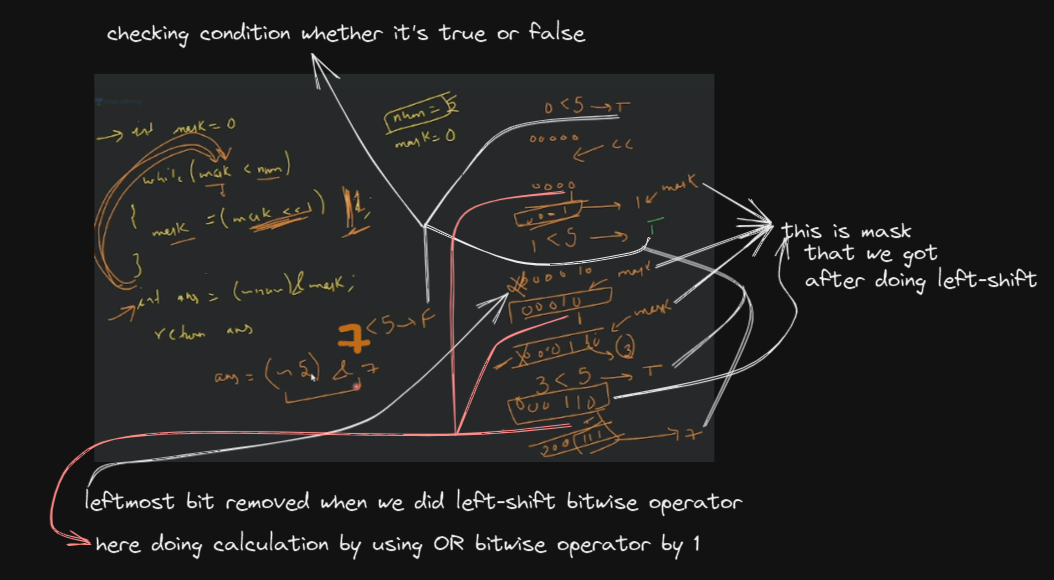 checking condition whether it's true or false
num = 5
mask = 0
→ int mask = 0
while (mask < num)
{
mask = (mask << 1) || 1;
}
int ans = (~num) & mask;
return ans
7 < 5 → F
ans = (~5) & 7
0 < 5 → T
00000
← <<
0000
1
00--1 → 1 ← mask
1 < 5 → T
00010 mask
00010
1
mask
3
3 < 5 → T
000 110
1
111 → 7
this is mask
that we got
after doing left-shift
leftmost bit removed when we did left-shift bitwise operator
here doing calculation by using OR bitwise operator by 1